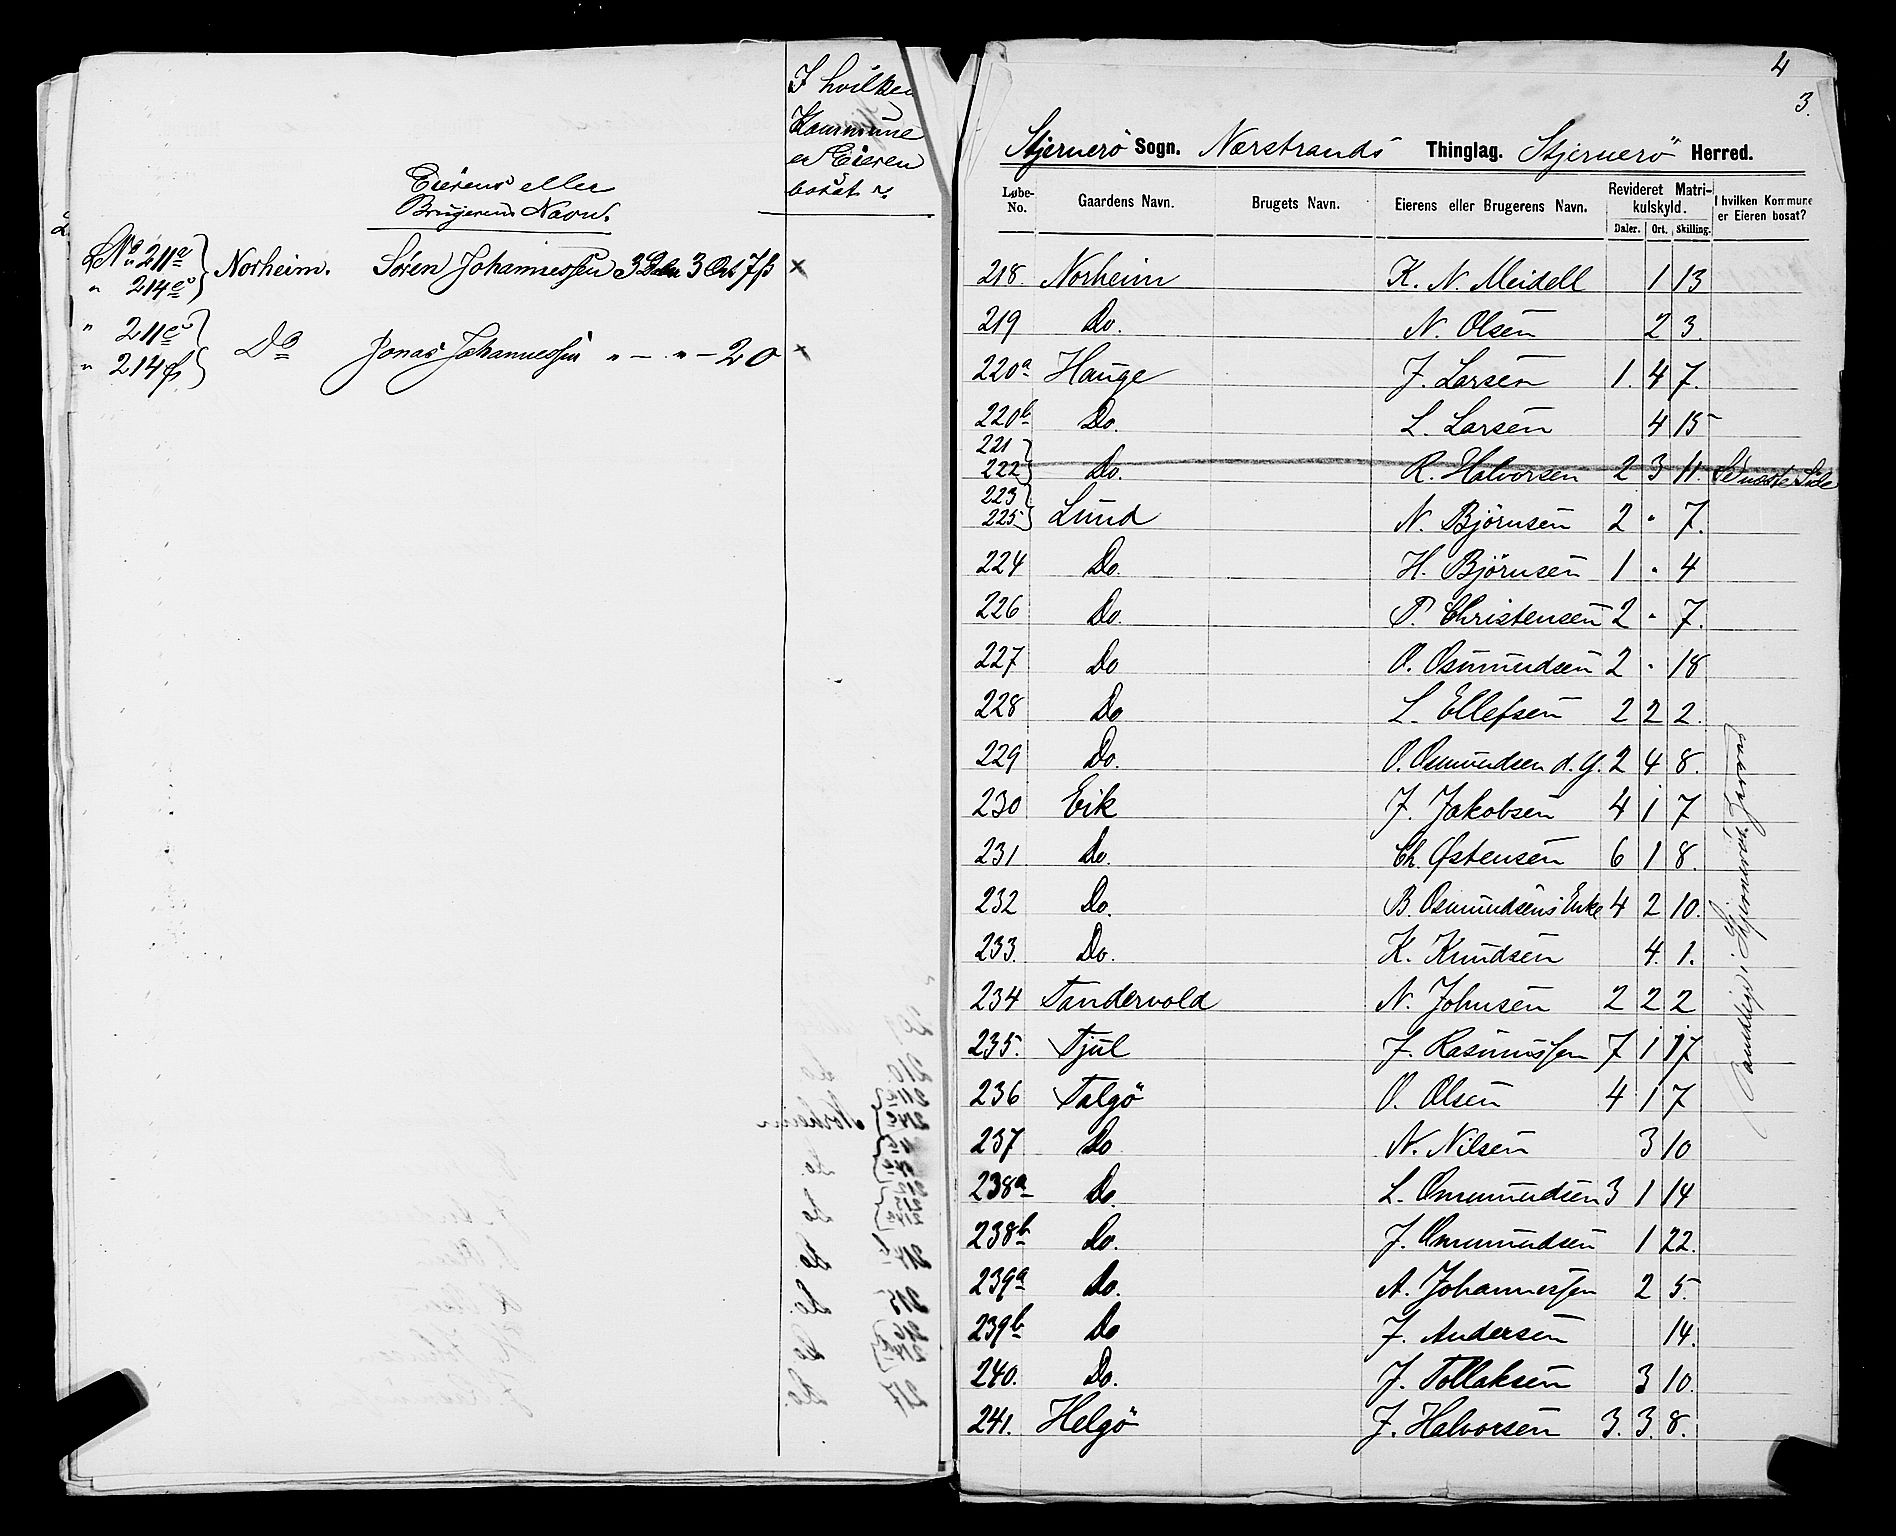 I hvilken
Kommune
er Eieren
bosat?
Eierens eller
Brugerens Navn.
L No 211a } Norheim. Søren Johannessen 3 Daler 3 Ort 7 ß x
" 214e
" 211c } Do Jonas Johannessen " — " — 20 x
" 214f
4
3.
Stjernerö Sogn. Nærstrands Thinglag. Stjernerö Herred.
Løbe-No. Gaardens Navn. Brugets Navn. Eierens eller Brugerens Navn. Revideret Matrikulskyld. I hvilken Kommune er Eieren bosat?
Daler. Ort. Skilling.
218. Norheim K. N. Meidell 1 13
219 Do. N. Olsen 2 3.
220a Hauge J. Larsen 1. 4 7.
220b Do. L. Larsen 4 15
221
222 } Do. R. Halvorsen 2 3 11. Se næste Side
223
225 } Lund N. Björnsen 2 " 7.
224 Do. H. Björnsen 1 " 4
226 Do. P. Christensen 2 " 7.
227 Do O. Osmundsen 2 " 18
228 Do L. Ellefsen 2 2 2.
229 Do. O. Osmundsen d. y. 2 4 8.
230 Eik J. Jakobsen 4 1 7
231 Do. Ch. Østensen 6 1 8.
232 Do. B. Osmundsens Enke 4 2 10.
233. Do. K. Knudsen 4. 1.
234 Tandervold N. Johnsen 2 2 2
235. Tjul J. Rasmussen 7 1 17
236 Talgö O. Olsen 4 1 7
237 Do N. Nilsen 3 10
238a Do. L. Ommundsen 3 1 14
238b Do. J. Ommundsen 1 22.
239a Do. A. Johannessen 2 5.
239b Do J. Andersen 14.
240. Do. J. Tollaksen 3 10.
241. Helgö J. Halvorsen 3. 3. 8.
Samtlige i Stjernerö